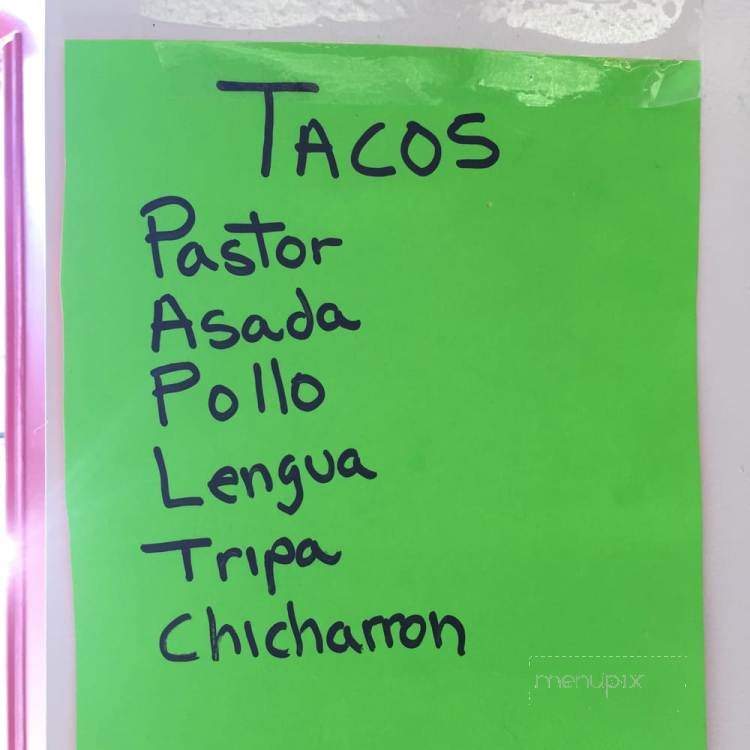 TACOS
Pastor
Asada
Pollo
Lengua
Tripa
Chicharron
menupix